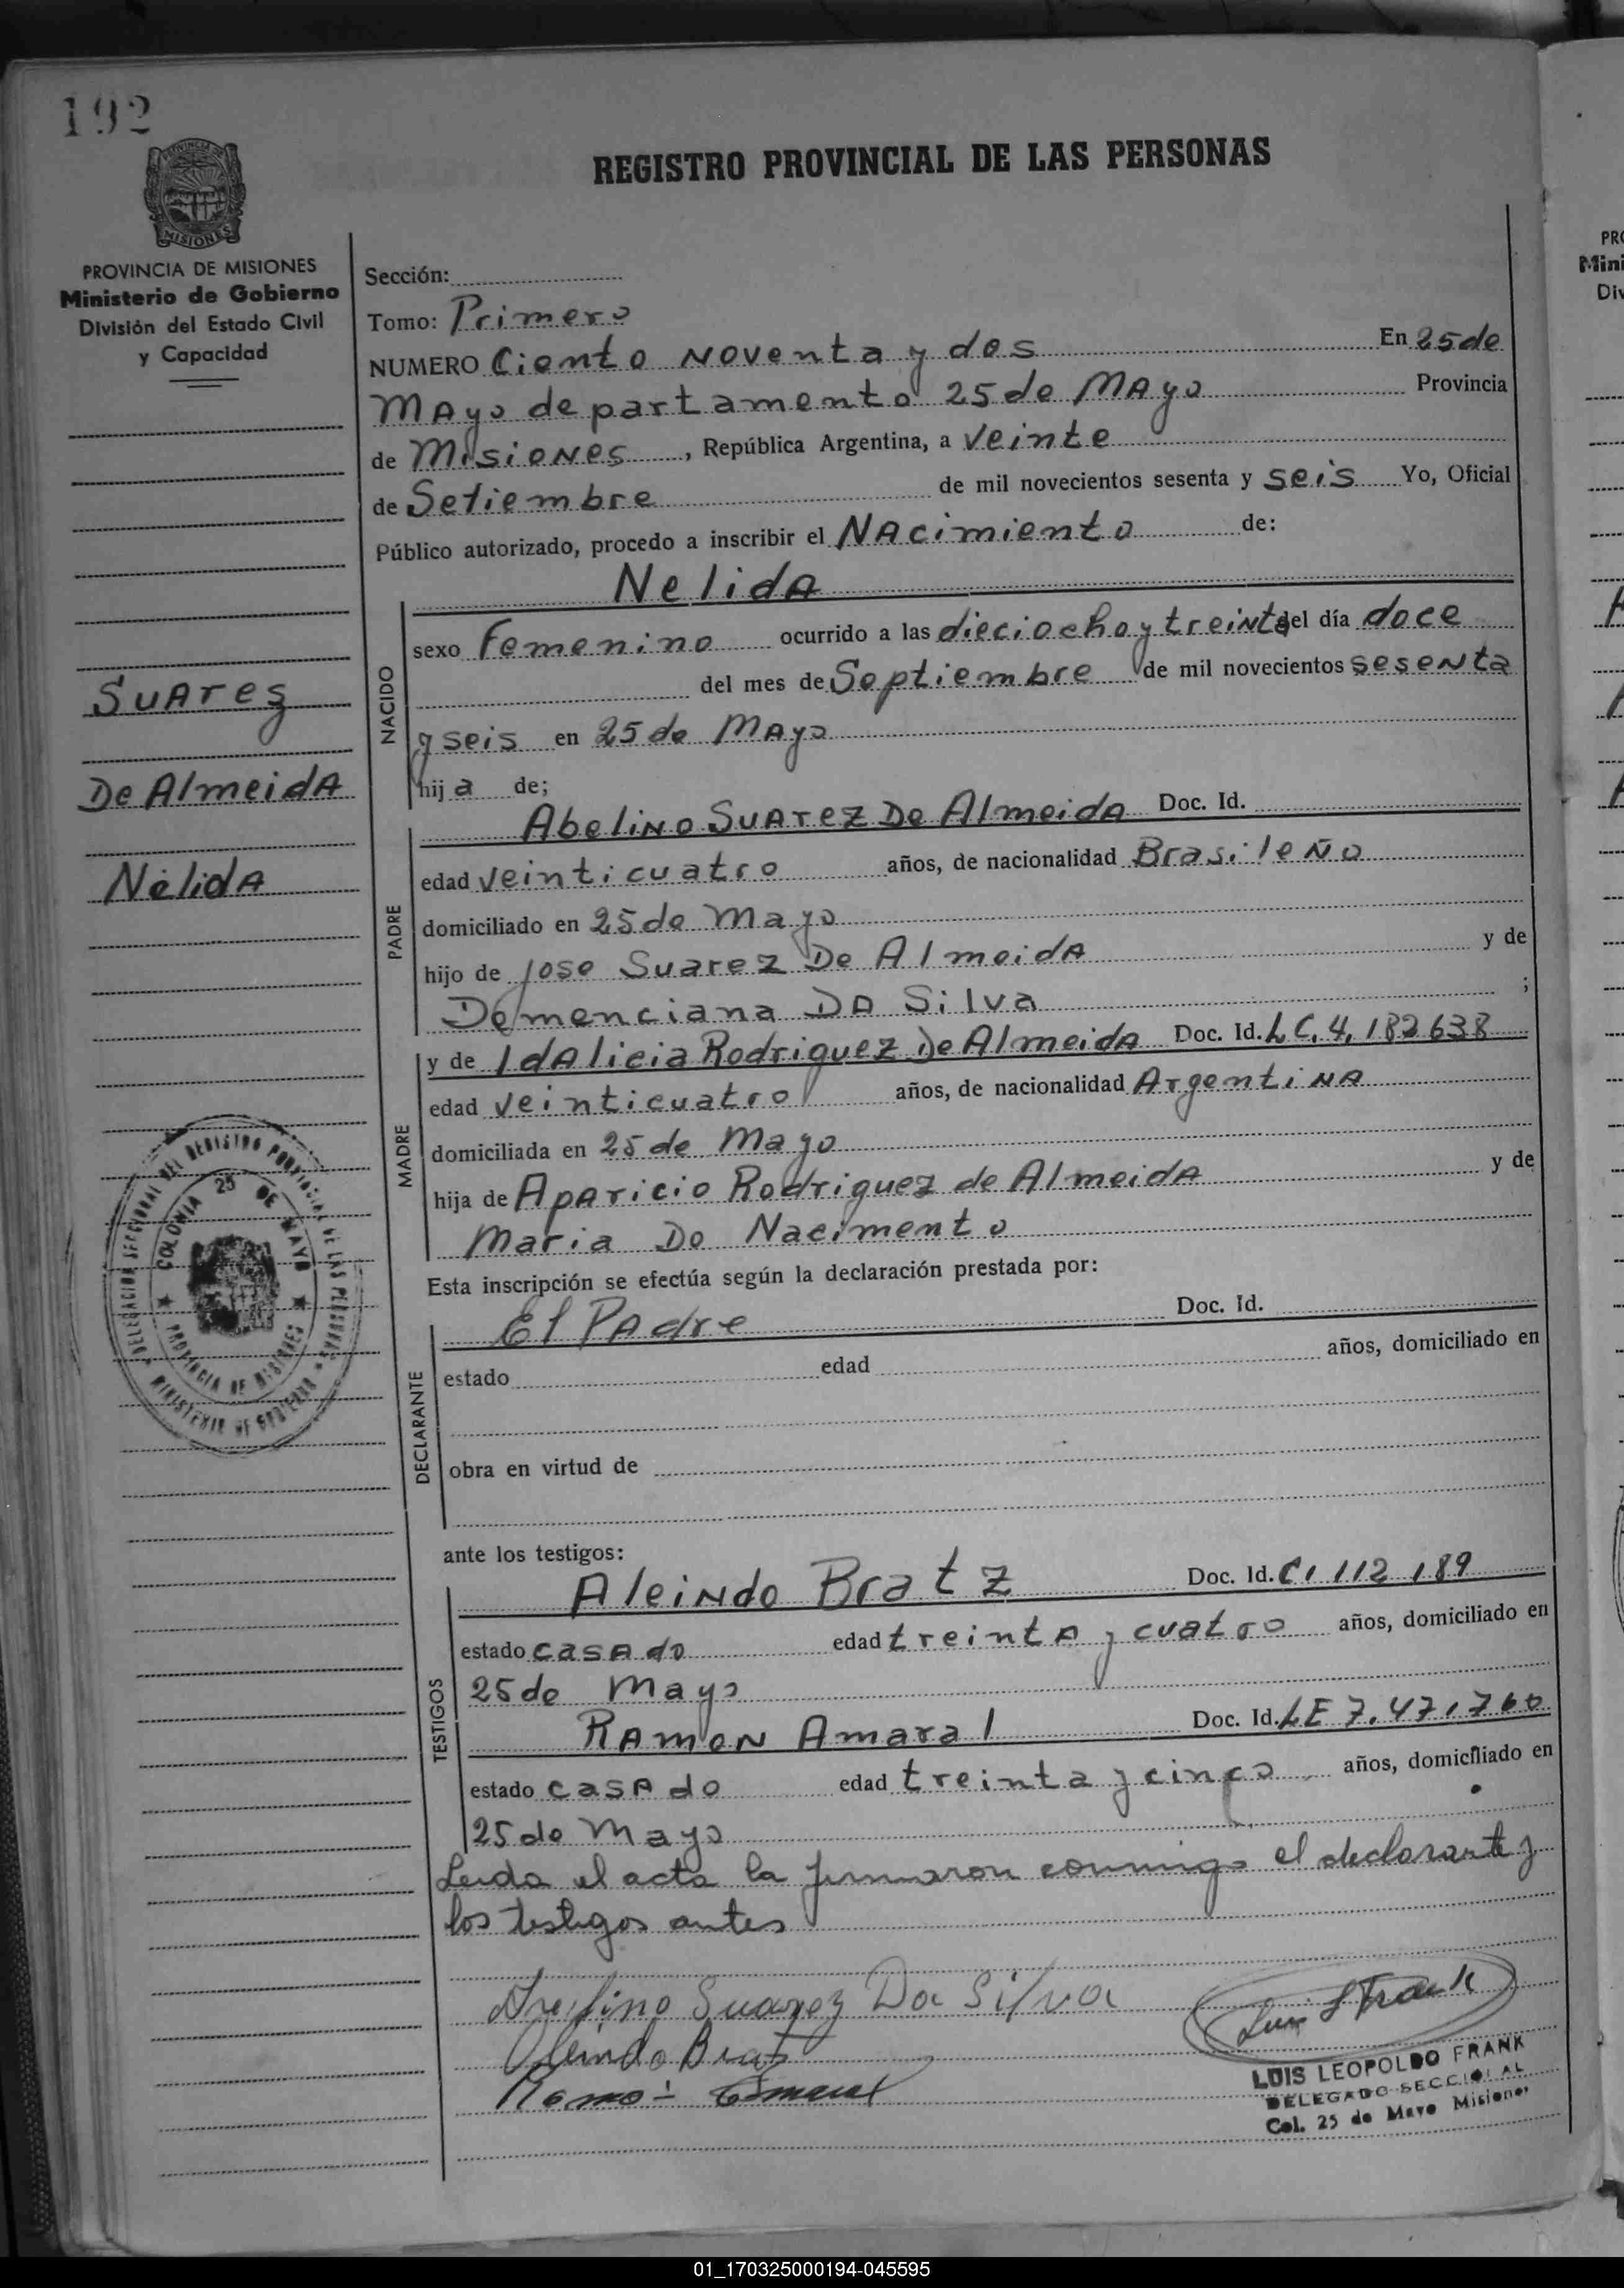 192
REGISTRO PROVINCIAL DE LAS PERSONAS
PROVINCIA DE MISIONES
MISIONES
PROVINCIA DE MISIONES
Ministerio de Gobierno
División del Estado Civil
y Capacidad
Suarez
De Almeida
Nélida
DELEGACION SECCIONAL DEL REGISTRO PROVINCIAL DE LAS PERSONAS
MINISTERIO DE GOBIERNO
COLONIA 25 DE MAYO
PROVINCIA DE MISIONES
Sección:
Tomo: Primero
NUMERO Ciento Noventa y dos En 25 de
Mayo departamento 25 de Mayo Provincia
de Misiones, República Argentina, a Veinte
de Setiembre de mil novecientos sesenta y seis Yo, Oficial
Público autorizado, procedo a inscribir el Nacimiento de:
NACIDO
Nelida
sexo Femenino ocurrido a las dieciocho y treinta del día doce
del mes de Septiembre de mil novecientos sesenta
y seis en 25 de Mayo
hija de;
PADRE
Abelino Suarez De Almeida Doc. Id.
edad veinticuatro años, de nacionalidad Brasileño
domiciliado en 25 de Mayo
hijo de Jose Suarez De Almeida y de
Demenciana Da Silva ;
MADRE
y de Idalicia Rodriguez De Almeida Doc. Id. LC. 4.182638
edad veinticuatro años, de nacionalidad Argentina
domiciliada en 25 de Mayo
hija de Aparicio Rodriguez de Almeida y de
Maria Do Nacimento
Esta inscripción se efectúa según la declaración prestada por:
DECLARANTE
El Padre Doc. Id.
estado edad años, domiciliado en
obra en virtud de
ante los testigos:
TESTIGOS
Aleindo Bratz Doc. Id. CI 112 189
estado casado edad treinta y cuatro años, domiciliado en
25 de Mayo
Ramon Amaral Doc. Id. LE 7.471760
estado casado edad treinta y cinco años, domiciliado en
25 de Mayo
Leida el acta la firmaron conmigo el declarante y
los testigos antes
Suarez Da Silva
Luis L Frank
LUIS LEOPOLDO FRANK
DELEGADO SECCIONAL
Col. 25 de Mayo Misiones
PRO
Mini
Div
01_170325000194-045595